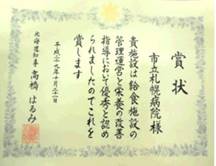 賞状
市立札幌病院様
貴施設は給食施設の
管理運営と栄養の改善
指導において優秀と認め
られましたのでこれを
賞します
平成二十年十月二十一日
北海道知事 高橋はるみ